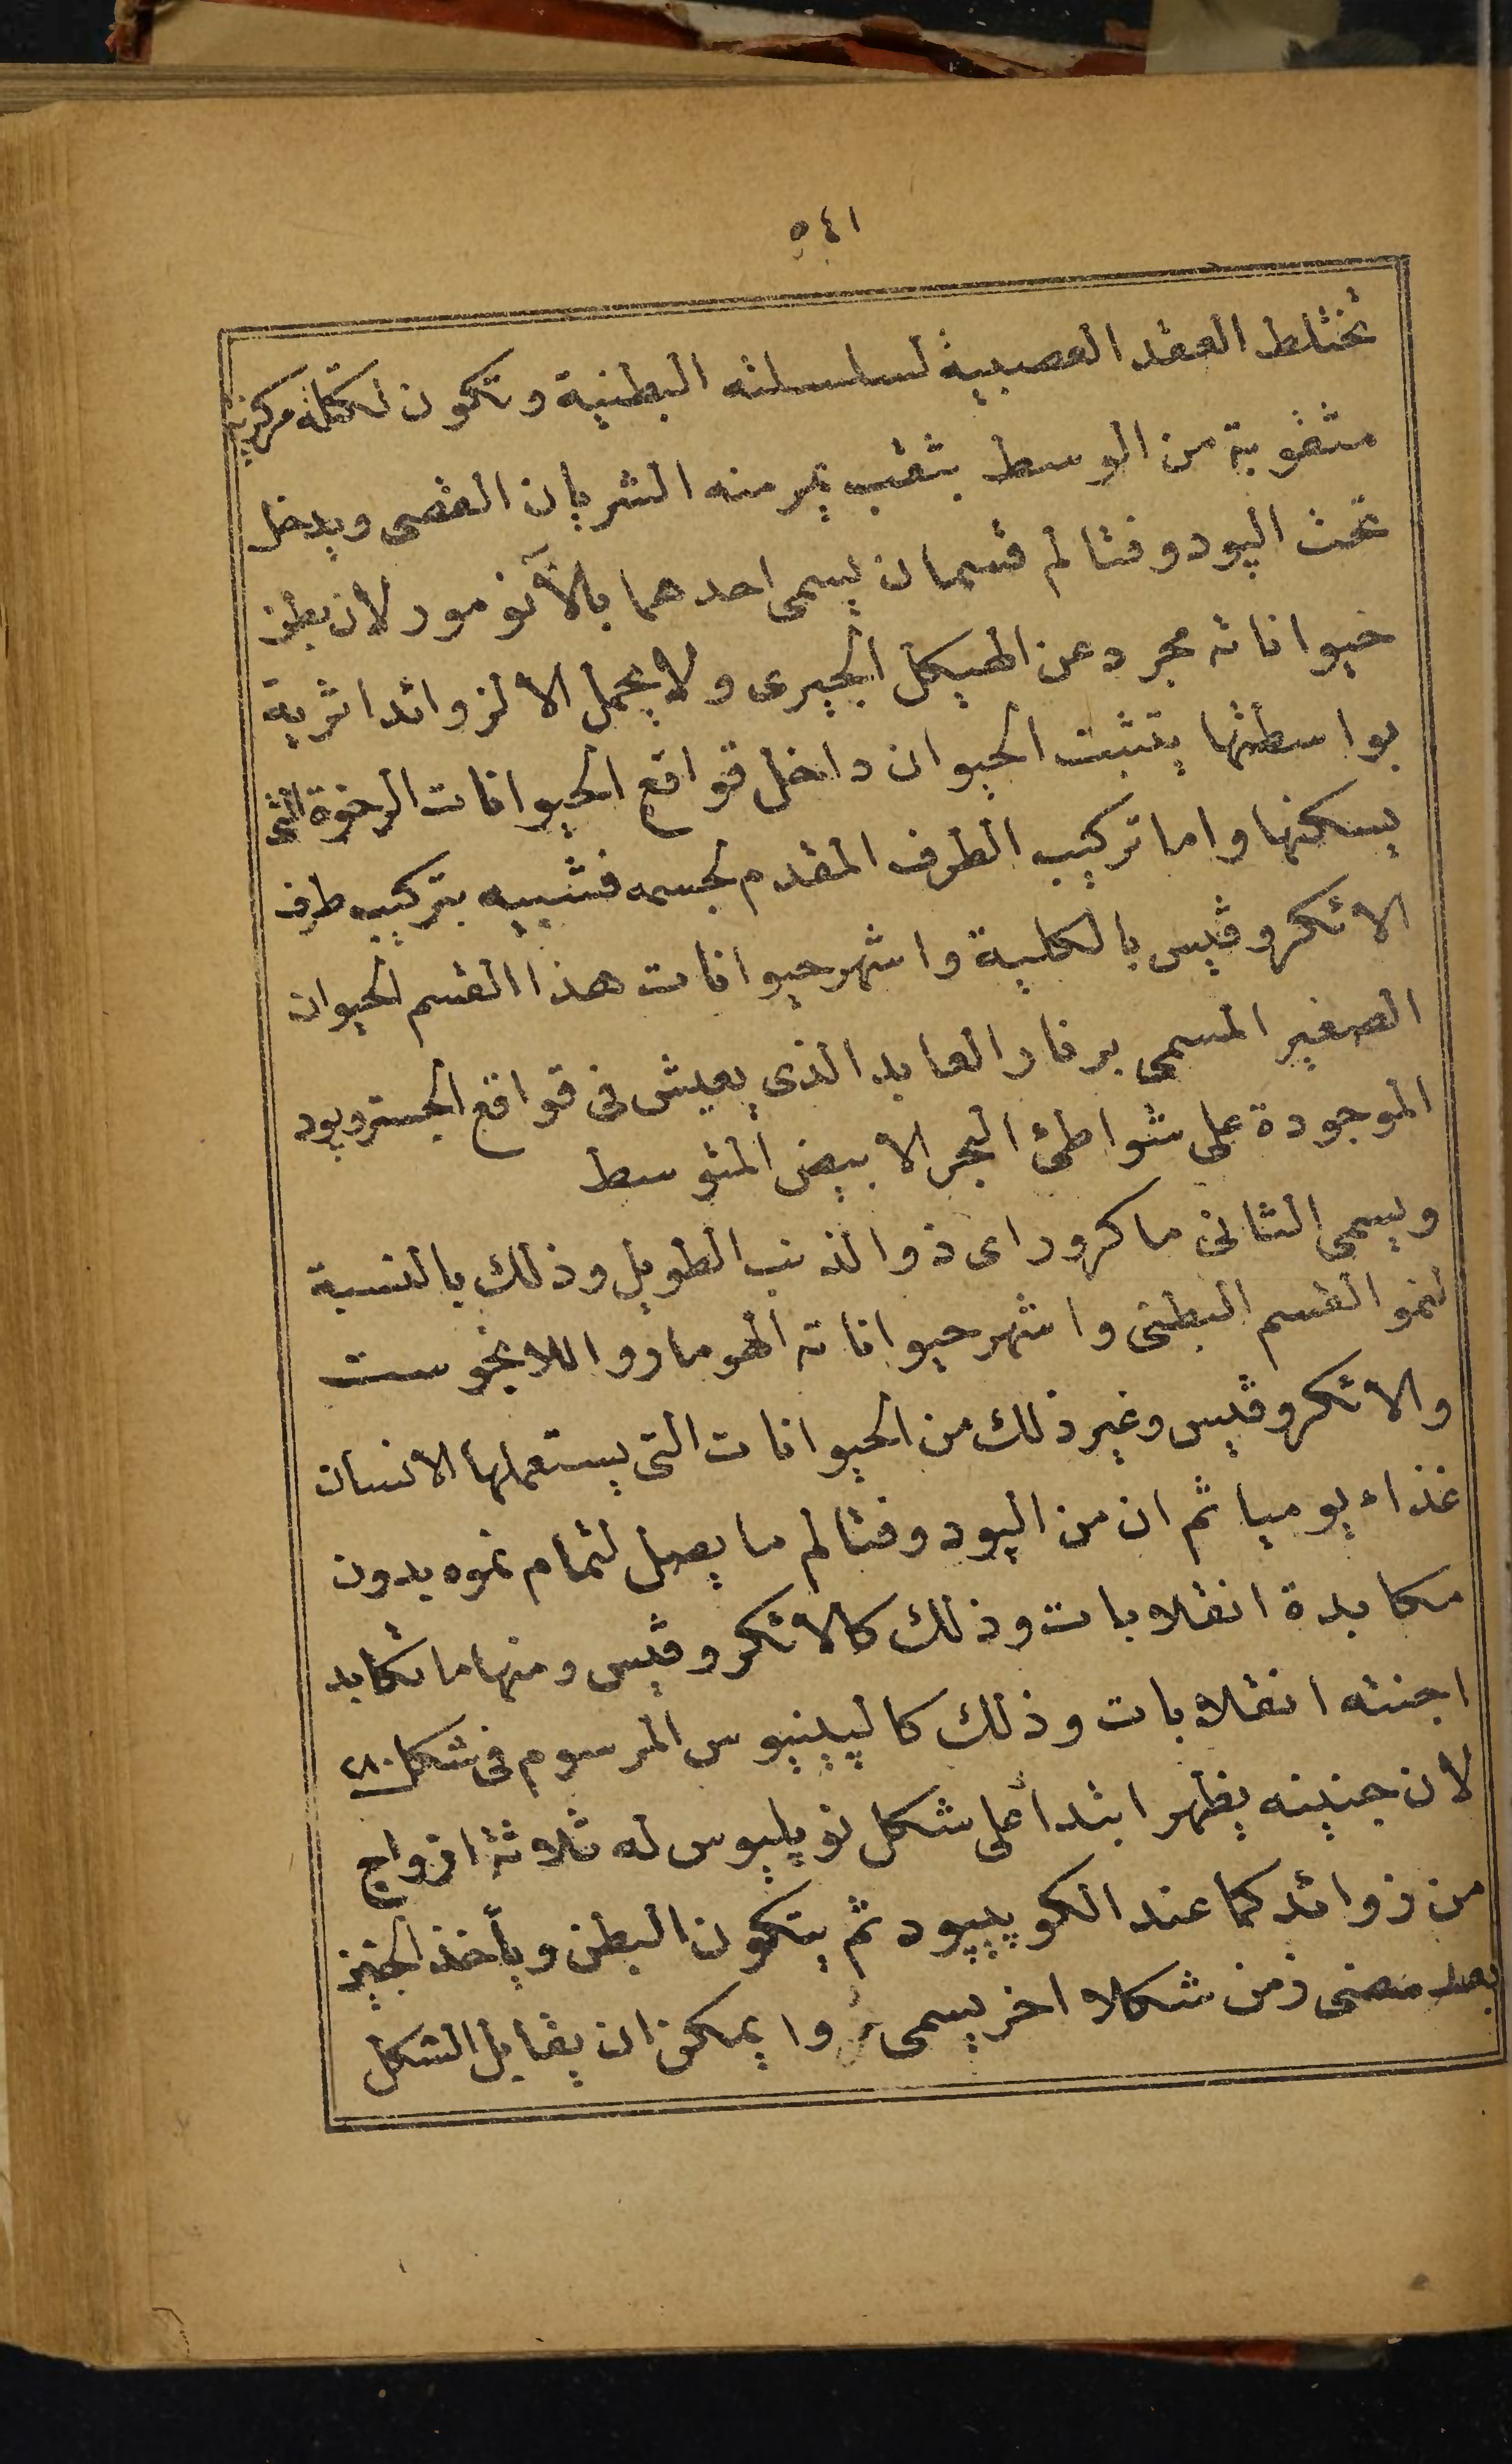 ٥٤١
تختلط العقد العصبية لسلسلته البطنية وتكون لكتلة مركزية
مثقوبة من الوسط بثقب يمر منه الشريان القصى ويدخل
تحت اليودوفثالم قسمان يسمى احدهما بالآنومور لان بطن
حيواناته مجرد عن الهيكل الجيرى ولا يحمل الا لزوائد اثرية
بواسطتها يتثبت الحيوان داخل قواقع الحيوانات الرخوة التى
يسكنها واما تركيب الطرف المقدم لجسمه فشبيه بتركيب طرف
الاتكروڤيس بالكلية واشهر حيوانات هذا القسم الحيوان
الصغير المسمى برنار العابد الذى يعيش فى قواقع الجستروبود
الموجودة على شواطئ البحر الابيض المتوسط
ويسمى الثانى ماكرور اى ذو الذنب الطويل وذلك بالنسبة
لنمو القسم البطنى واشهر حيواناته الهومار واللانجوست
والاتكروڤيس وغير ذلك من الحيوانات التى يستعملها الانسان
غذاء يوميا ثم ان من اليودوفثالم ما يصل لتمام نموه بدون
مكابدة انقلابات وذلك كالاتكروڤيس ومنها ما تكابد
اجنته انقلابات وذلك كالپينيوس المرسوم فى شكل ٢٨٠
لان جنينه يظهر ابتدأ على شكل نوپليوس له ثلاثة ازواج
من زوائد كما عند الكوپيپود ثم يتكون البطن ويأخذ الجنين
بعد مضى زمن شكلا اخر يسمى زوا يمكن ان يقابل الشكل